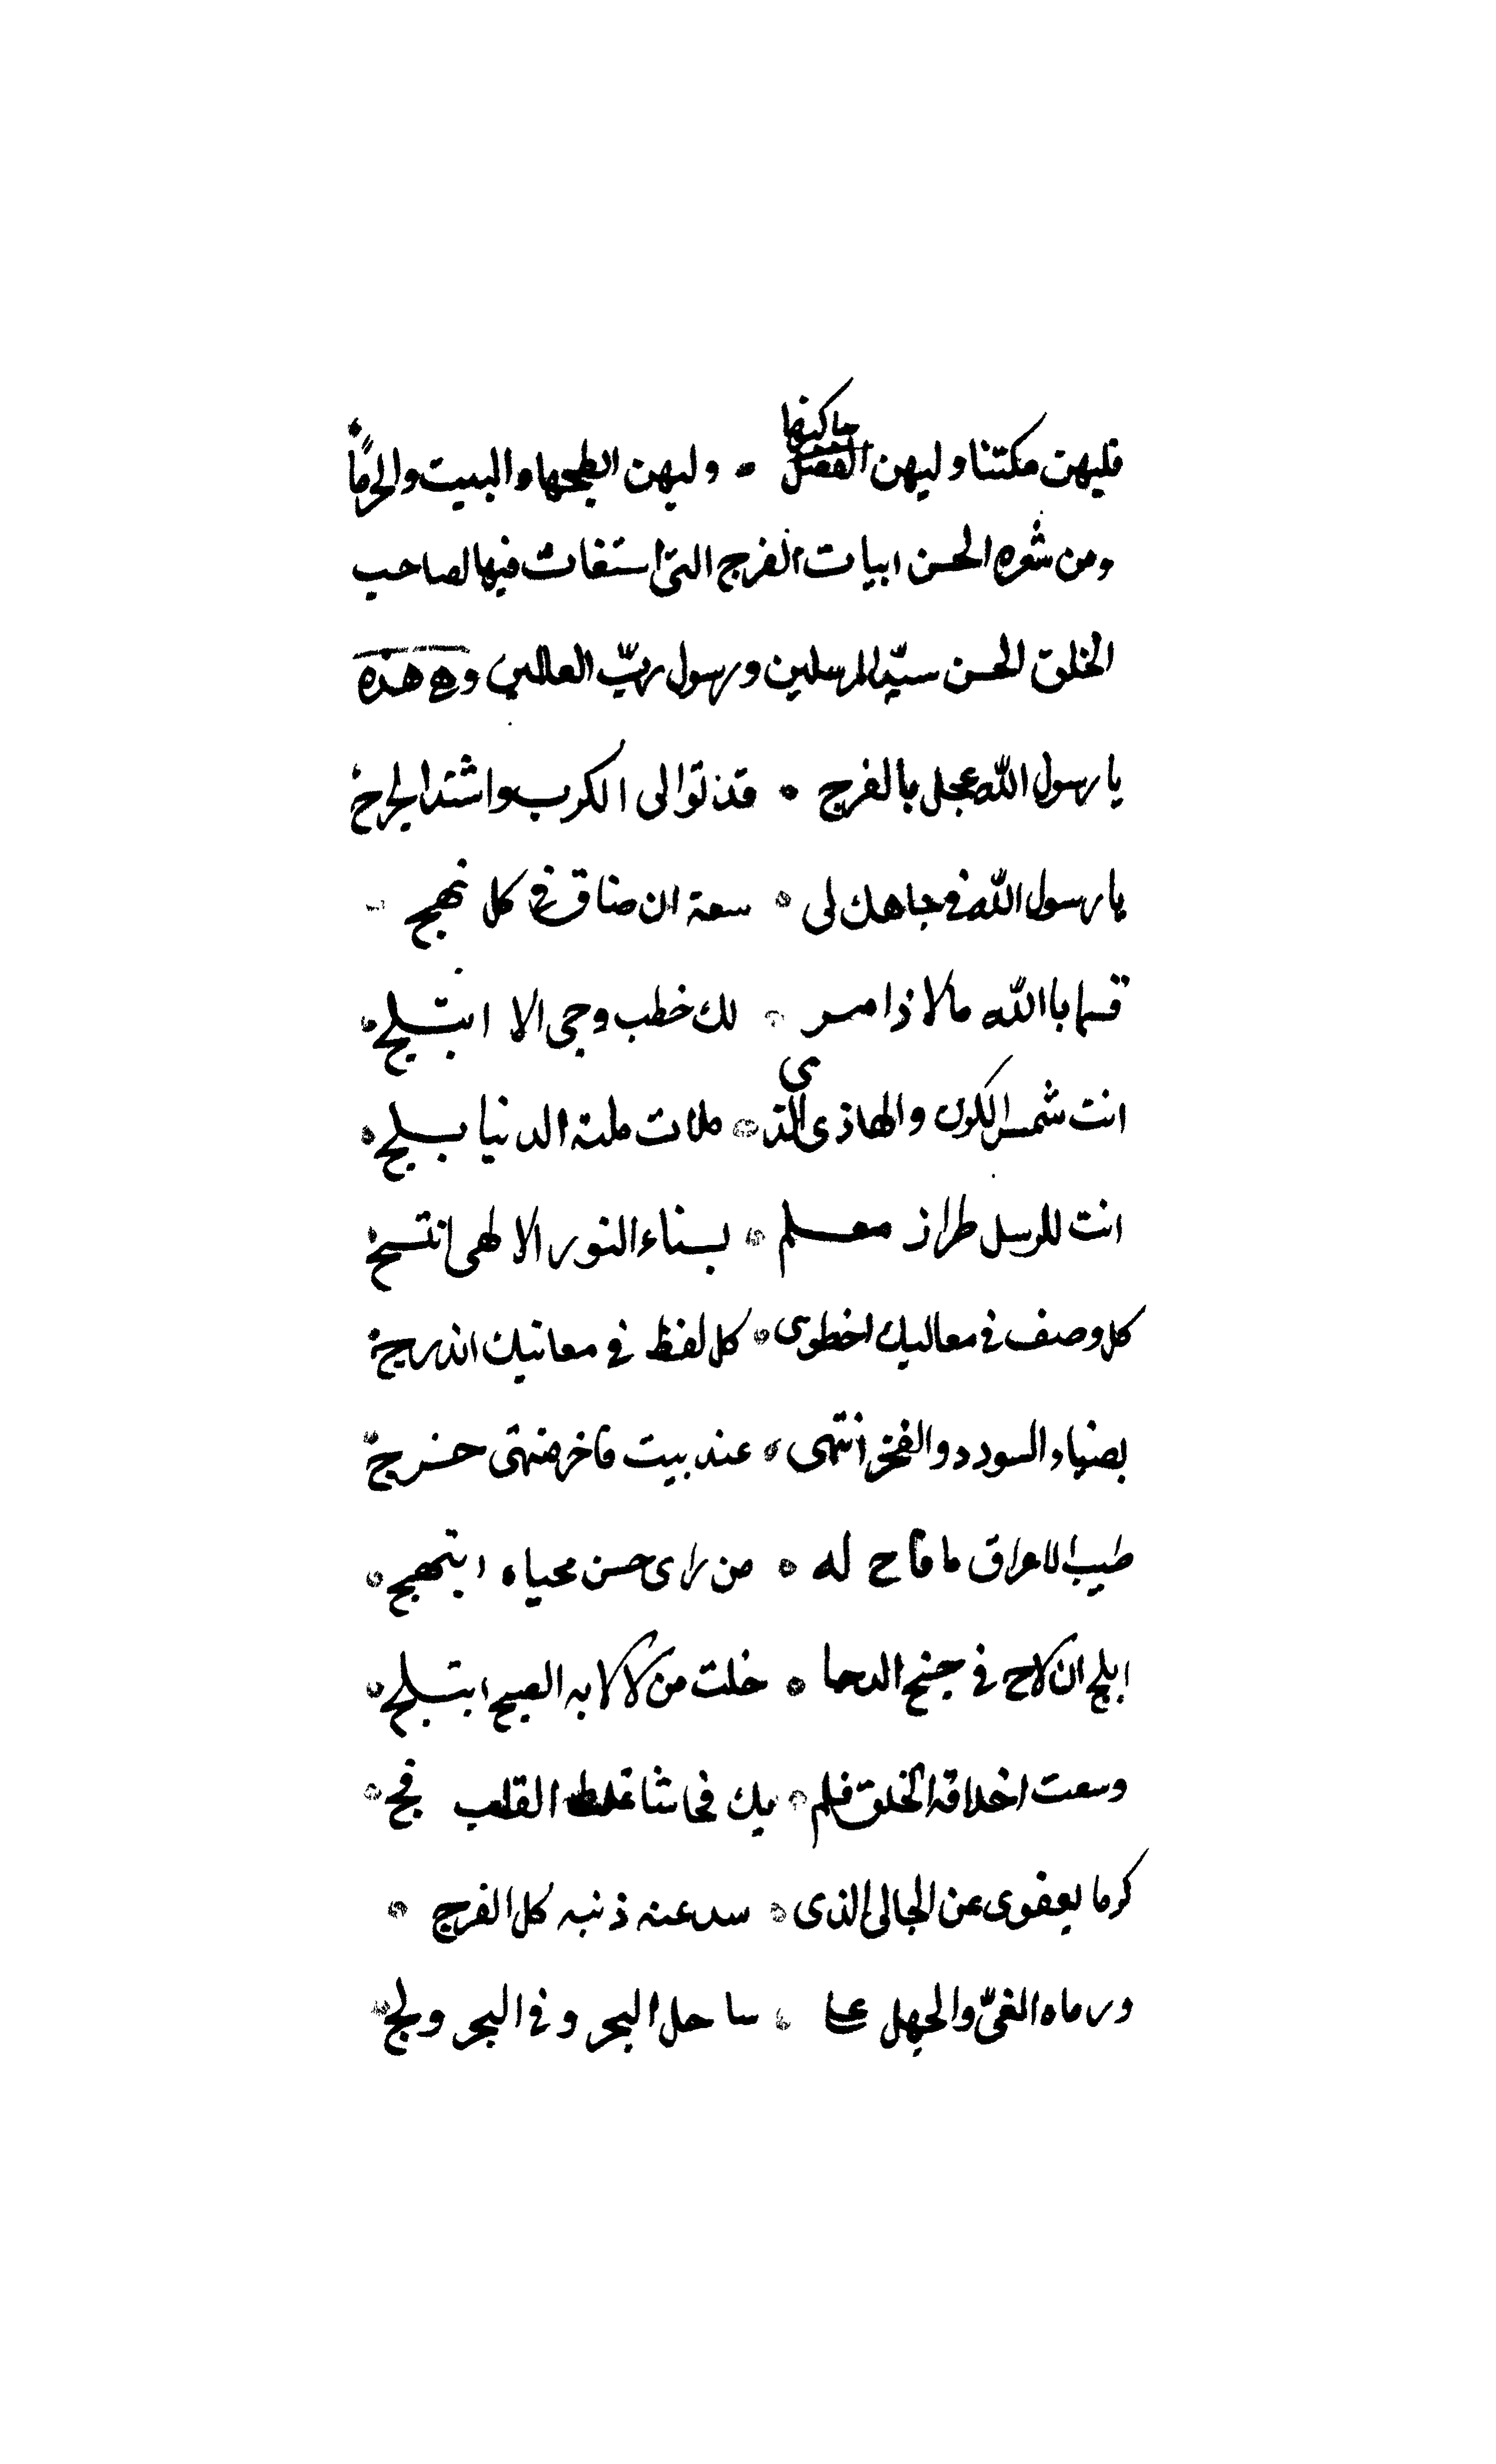 فليهن مكتنا وليهن الفضل ساكنها * وليهن ابطحها والبيت والحرما
ومن شعره الحسن ابيات الفرج التى استغاث فيها لصاحب
الخلق الحسن سيّد المرسلين ورسول ربّ العالمين وهى هذه
يا رسول الله عجل بالفرج * قد توالى الكرب واشتد الحرج
يا رسول الله فى جاهك لى * سعة ان ضاق فى كل نهج
قسما باالله ما لاذا مر * لك خطب وجى الا ابتلج
انت شمس الكون والهاذى الذى * ملات ملته الدنيا بلج
انت للرسل طراز معلم * بسناء النور الالهى انتسج
كل وصف فى معاليك اخطوى * كل لفظ فى معانيك اندرج
بضياء السودد والفخر انتهى * عند بيت فاخر منتهى خرج
طيب الاعراق ما فاح له * من راى حسن محياه ابتهج
ابلج ان لاح فى جنح الدحا * خلت من لالايه الصبح ابتلج
وسعت اخلاقه الخلق فلم * يك فحاشا غلط القلب فج
كرما يعفوى عن الجالى الذى * سد عنه ذنبه كل الفرج
ورماه الغىّ والجهل على * ساحل البحر وفى البحر ولج